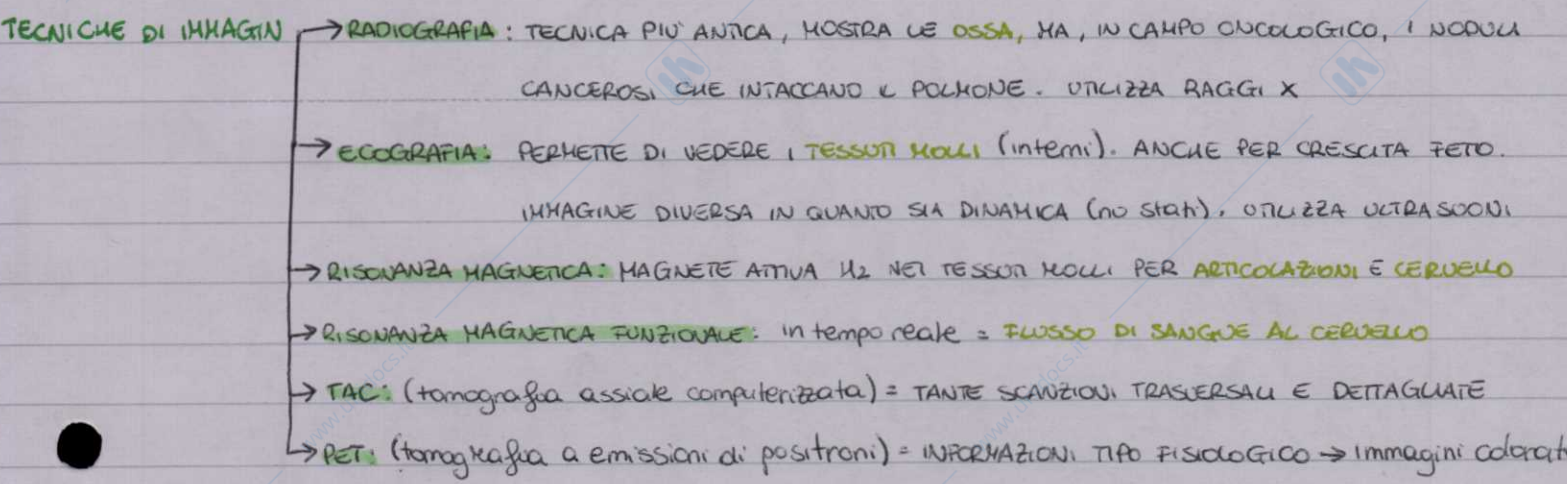 TECNICHE DI IMMAGIN → RADIOGRAFIA: TECNICA PIÙ ANTICA, MOSTRA LE OSSA, MA, IN CAMPO ONCOLOGICO, I NODULI
CANCEROSI CHE INTACCANO IL POLMONE. UTILIZZA RAGGI X
→ ECOGRAFIA: PERMETTE DI VEDERE I TESSUTI MOLLI (interni). ANCHE PER CRESCITA FETO.
IMMAGINE DIVERSA IN QUANTO SIA DINAMICA (no stati). UTILIZZA ULTRASUONI
→ RISONANZA MAGNETICA: MAGNETE ATTIVA H2 NEI TESSUTI MOLLI PER ARTICOLAZIONI E CERVELLO
→ RISONANZA MAGNETICA FUNZIONALE: in tempo reale = FLUSSO DI SANGUE AL CERVELLO
→ TAC: (tomografia assiale computerizzata) = TANTE SCANZIONI TRASVERSALI E DETTAGLIATE
→ PET: (tomografia a emissioni di positroni) = INFORMAZIONI TIPO FISIOLOGICO → immagini colorat